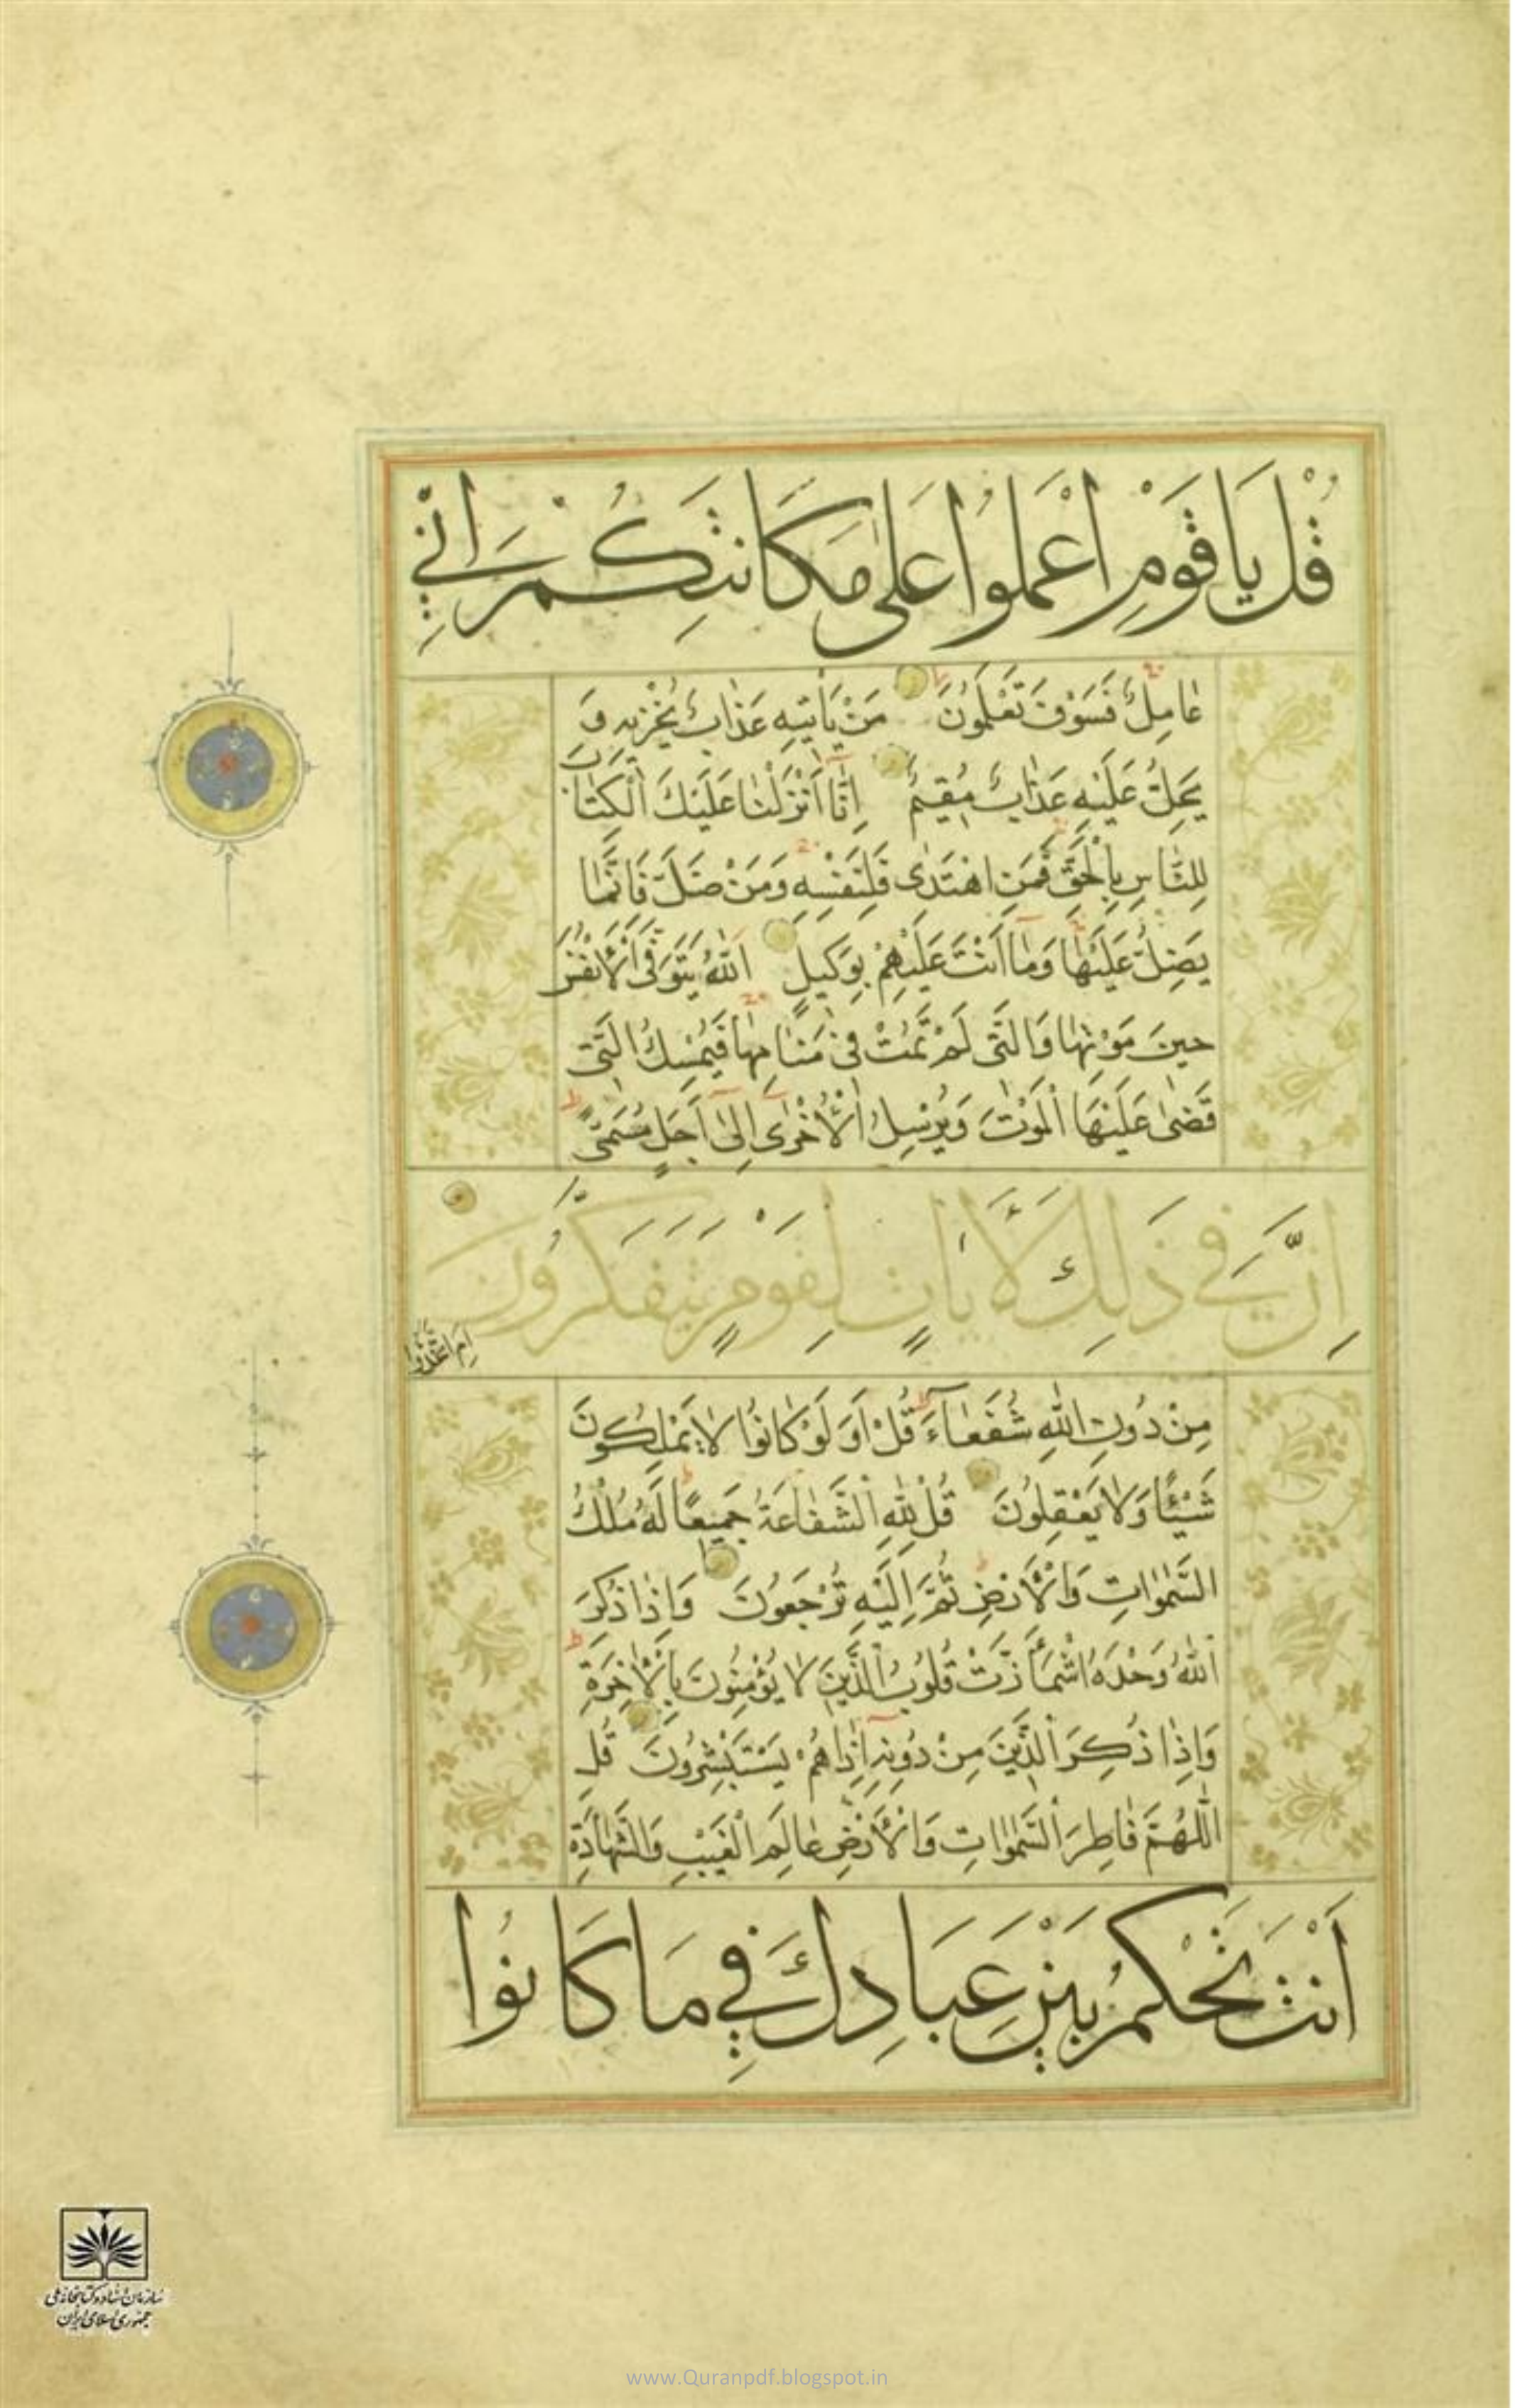 قُلْ يَا قَوْمِ اعْمَلُوا عَلَىٰ مَكَانَتِكُمْ إِنِّي
عَامِلٌ فَسَوْفَ تَعْلَمُونَ مَنْ يَأْتِيهِ عَذَابٌ يُخْزِيهِ وَ
يَحِلُّ عَلَيْهِ عَذَابٌ مُقِيمٌ إِنَّا أَنْزَلْنَا عَلَيْكَ الْكِتَابَ
لِلنَّاسِ بِالْحَقِّ فَمَنِ اهْتَدَىٰ فَلِنَفْسِهِ وَمَنْ ضَلَّ فَإِنَّمَا
يَضِلُّ عَلَيْهَا وَمَا أَنْتَ عَلَيْهِمْ بِوَكِيلٍ اللَّهُ يَتَوَفَّى الْأَنْفُسَ
حِينَ مَوْتِهَا وَالَّتِي لَمْ تَمُتْ فِي مَنَامِهَا فَيُمْسِكُ الَّتِي
قَضَىٰ عَلَيْهَا الْمَوْتَ وَيُرْسِلُ الْأُخْرَىٰ إِلَىٰ أَجَلٍ مُسَمًّى
إِنَّ فِي ذَٰلِكَ لَآيَاتٍ لِقَوْمٍ يَتَفَكَّرُونَ
أَمِ اتَّخَذُوا
مِنْ دُونِ اللَّهِ شُفَعَاءَ قُلْ أَوَلَوْ كَانُوا لَا يَمْلِكُونَ
شَيْئًا وَلَا يَعْقِلُونَ قُلْ لِلَّهِ الشَّفَاعَةُ جَمِيعًا لَهُ مُلْكُ
السَّمَٰوَاتِ وَالْأَرْضِ ثُمَّ إِلَيْهِ تُرْجَعُونَ وَإِذَا ذُكِرَ
اللَّهُ وَحْدَهُ اشْمَأَزَّتْ قُلُوبُ الَّذِينَ لَا يُؤْمِنُونَ بِالْآخِرَةِ
وَإِذَا ذُكِرَ الَّذِينَ مِنْ دُونِهِ إِذَا هُمْ يَسْتَبْشِرُونَ قُلِ
اللَّهُمَّ فَاطِرَ السَّمَٰوَاتِ وَالْأَرْضِ عَالِمَ الْغَيْبِ وَالشَّهَادَةِ
أَنْتَ تَحْكُمُ بَيْنَ عِبَادِكَ فِي مَا كَانُوا
سازمان اسناد و کتابخانه ملی
جمهوری اسلامی ایران
www.Quranpdf.blogspot.in